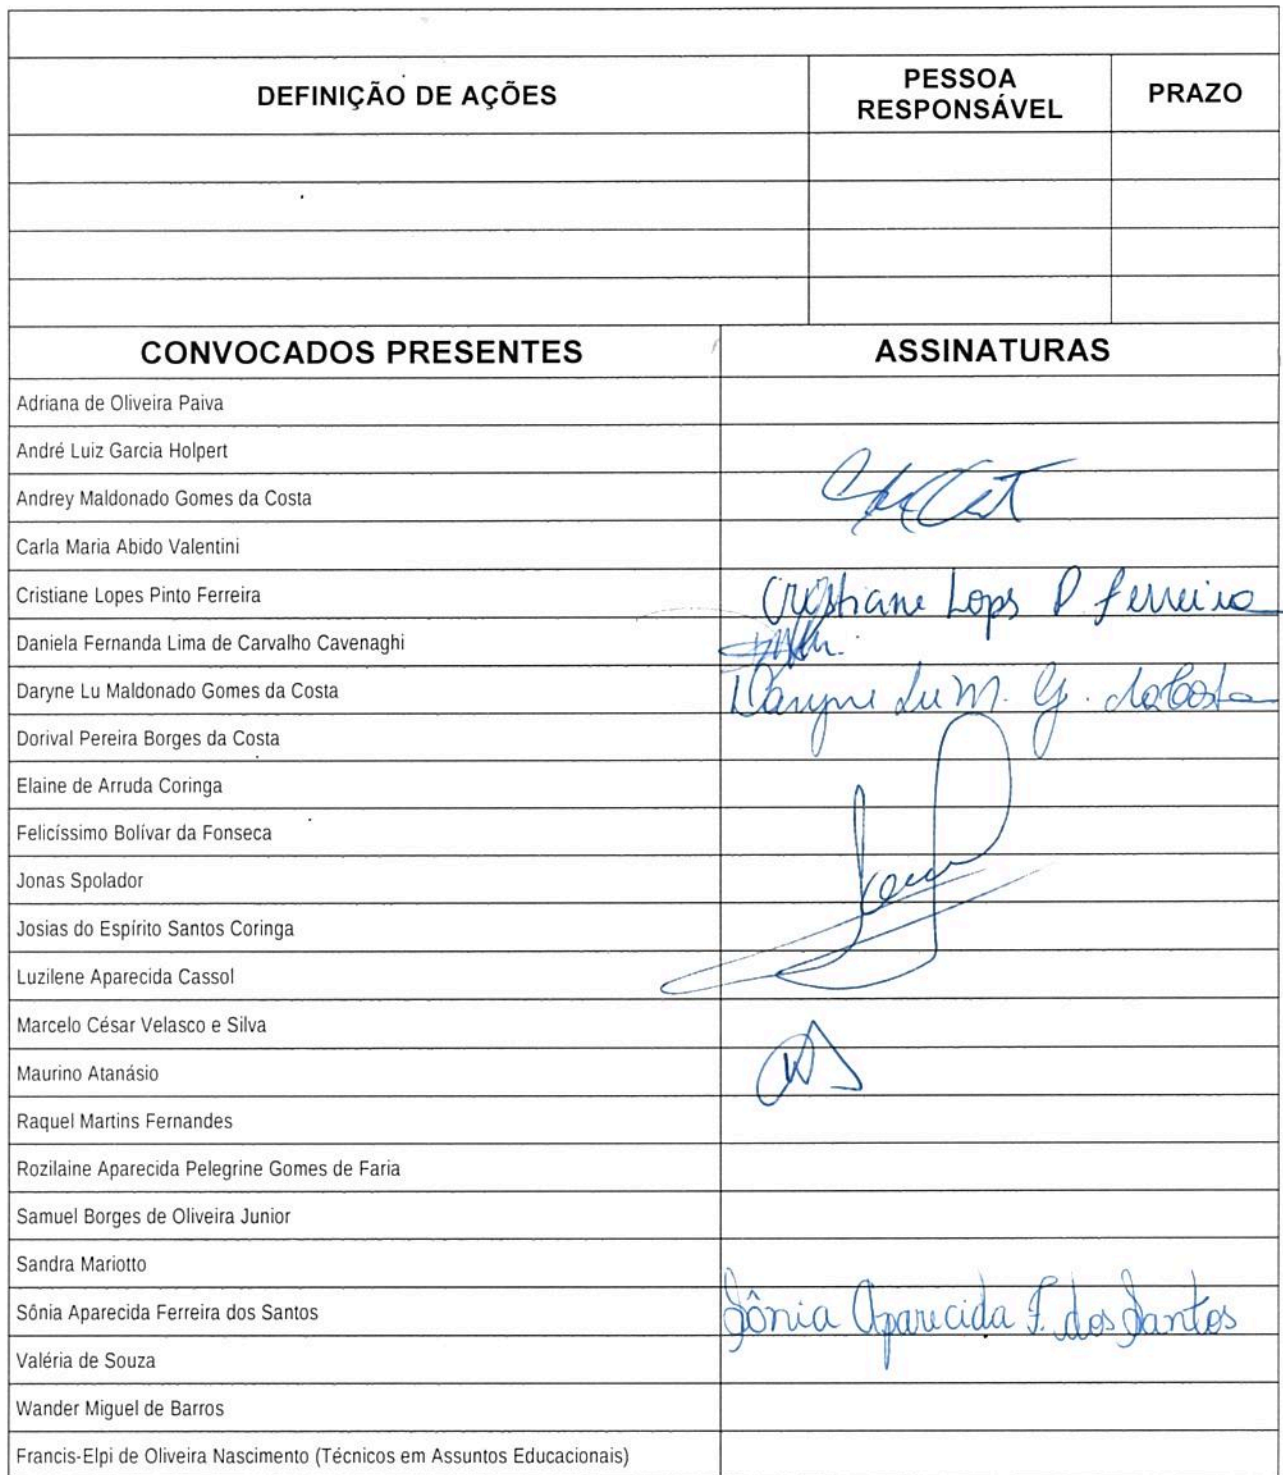 DEFINIÇÃO DE AÇÕES PESSOA RESPONSÁVEL PRAZO
CONVOCADOS PRESENTES ASSINATURAS
Adriana de Oliveira Paiva
André Luiz Garcia Holpert
Andrey Maldonado Gomes da Costa
Carla Maria Abido Valentini
Cristiane Lopes Pinto Ferreira Cristiane Lops P Ferreira
Daniela Fernanda Lima de Carvalho Cavenaghi
Daryne Lu Maldonado Gomes da Costa Daryne Lu M. G. da Costa
Dorival Pereira Borges da Costa
Elaine de Arruda Coringa
Felicíssimo Bolívar da Fonseca
Jonas Spolador
Josias do Espírito Santos Coringa
Luzilene Aparecida Cassol
Marcelo César Velasco e Silva
Maurino Atanásio
Raquel Martins Fernandes
Rozilaine Aparecida Pelegrine Gomes de Faria
Samuel Borges de Oliveira Junior
Sandra Mariotto
Sônia Aparecida Ferreira dos Santos Sônia Aparecida F. dos Santos
Valéria de Souza
Wander Miguel de Barros
Francis-Elpi de Oliveira Nascimento (Técnicos em Assuntos Educacionais)